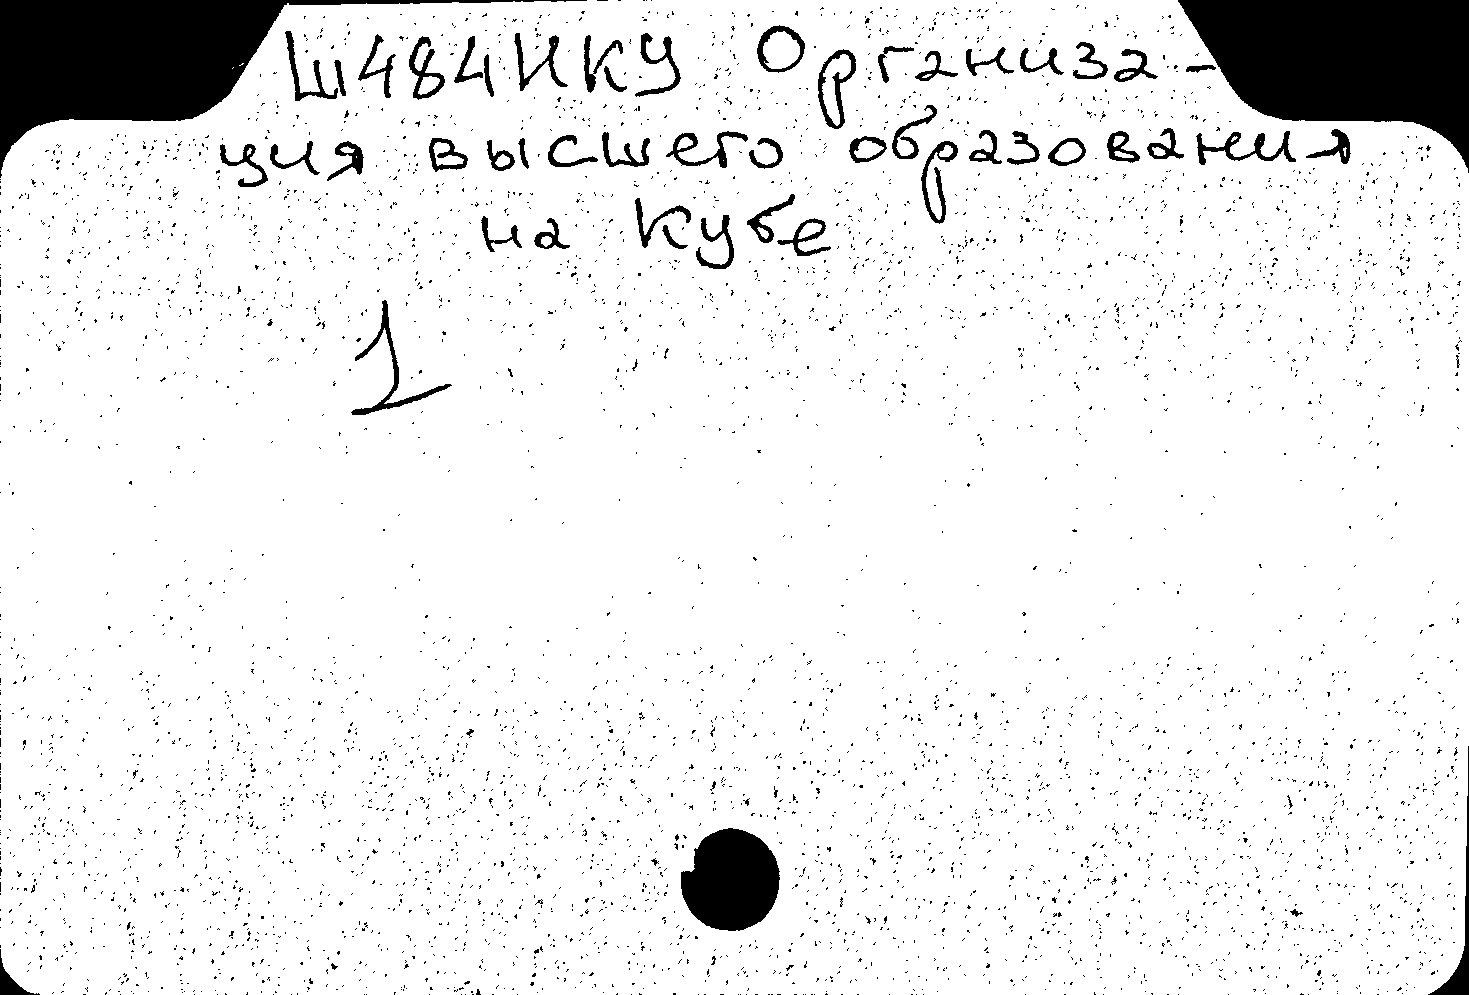 Ш484НКУ Организа-
ция высшего образования
на Кубе
1